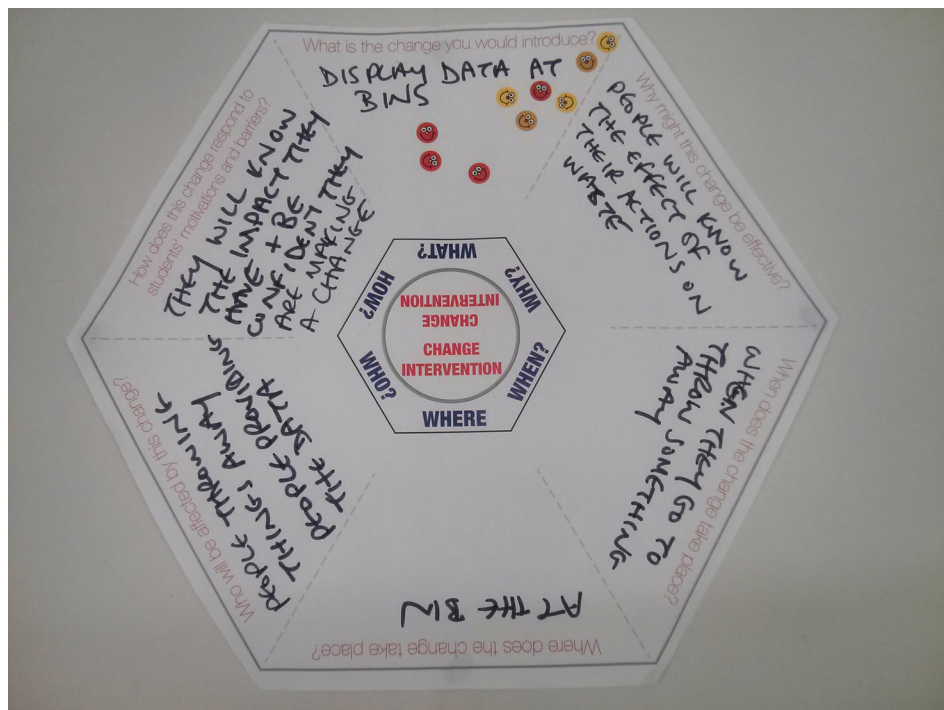 What is the change you would introduce?
DISPLAY DATA AT
BINS
Why might this change be effective?
PEOPLE WILL KNOW
THE EFFECT OF
THEIR ACTIONS ON
WASTE
When does the change take place?
WHEN THEY GO TO
THROW SOMETHING
AWAY
Where does the change take place?
AT THE BIN
Who will be affected by this change?
PEOPLE THROWING
THINGS AWAY
PEOPLE PROVIDING
THE DATA
How does this change respond to
students' motivations and barriers?
THEY WILL KNOW
THE IMPACT THEY
HAVE + BE
CONFIDENT THEY
ARE MAKING
A CHANGE
WHAT?
WHY?
WHEN?
WHERE
WHO?
HOW?
CHANGE
INTERVENTION
CHANGE
INTERVENTION